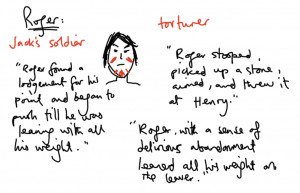 Roger:
Jack's soldier
"Roger found a
lodgement for his
point and began to
push till he was
leaning with all
his weight."
torturer
"Roger stooped,
picked up a stone,
aimed, and threw it
at Henry."
"Roger, with a sense of
delirious abandonment
leaned all his weight on
the lever."